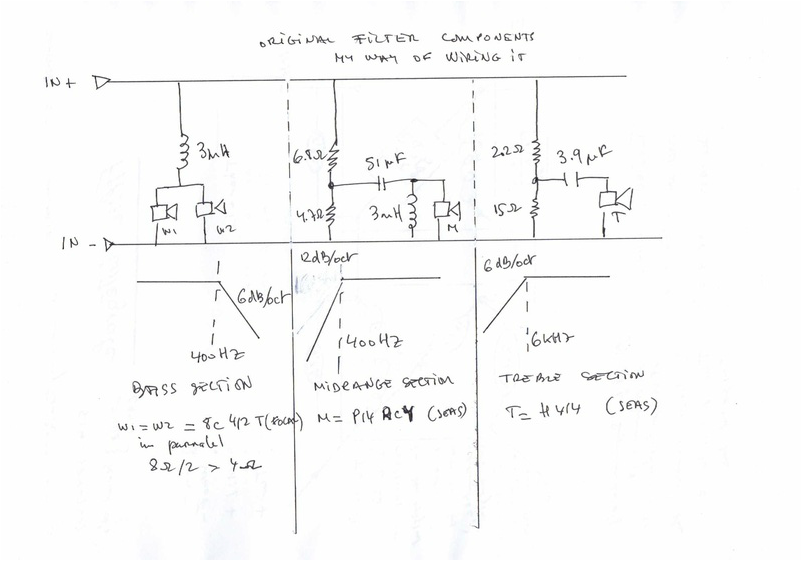 ORIGINAL FILTER COMPONENTS
MY WAY OF WIRING IT
IN +
3mH
6.8Ω
51µF
2.2Ω
3.9µF
4.7Ω
3mH
15Ω
W1
W2
M
T
IN -
12dB/oct
6dB/oct
6dB/oct
400HZ
400HZ
6KHz
BASS SECTION
MIDRANGE SECTION
TREBLE SECTION
W1 = W2 = 8C 412 T(FOCAL)
in parralel
8Ω/2 > 4Ω
M = P14 RCY (SEAS)
T = H414 (SEAS)